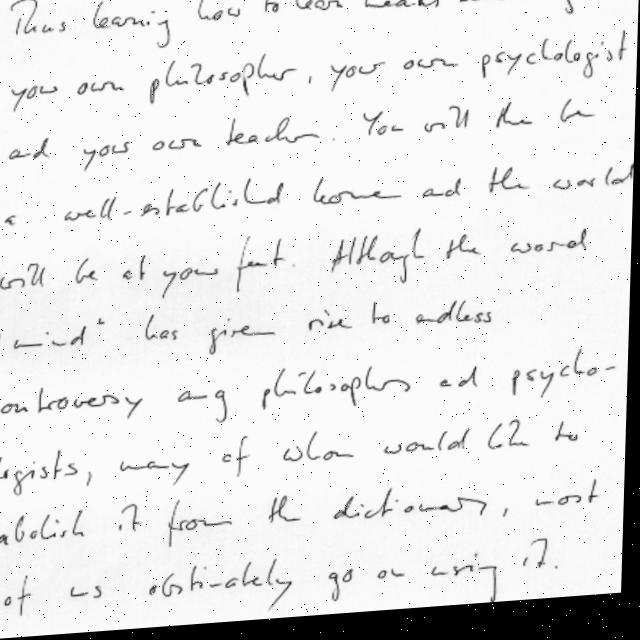 Thus learning how to learn means
your own philosopher, your own psychologist
and your own teacher. You will then be
a well-established learner and the world
will be at your feet. Although the word
"mind" has given rise to endless
controversy among philosophers and psycho-
logists, many of whom would like to
abolish it from the dictionary, most
of us obstinately go on using it.